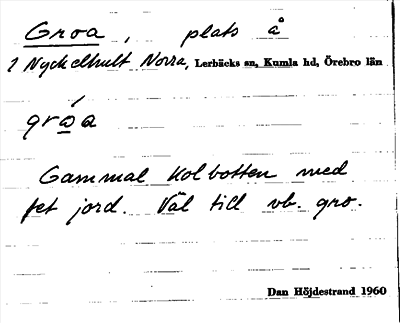 Groa, plats å
? Nyckelhult Norra, Lerbäcks sn, Kumla hd, Örebro län
gróa
Gammal Kolbotten med
fet jord. Väl till vb. gro.
Dan Höjdestrand 1960